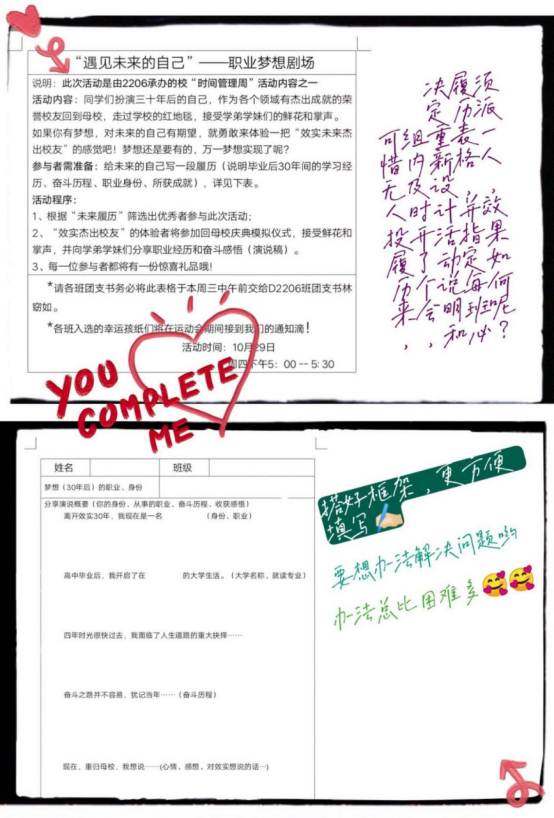 “遇见未来的自己”——职业梦想剧场
说明：此次活动是由2206承办的校“时间管理周”活动内容之一
活动内容：同学们扮演三十年后的自己，作为各个领域有杰出成就的荣
誉校友回到母校，走过学校的红地毯，接受学弟学妹们的鲜花和掌声。
如果你有梦想，对未来的自己有期望，就勇敢来体验一把“效实未来杰
出校友”的感觉吧！梦想还是要有的，万一梦想实现了呢？
参与者需准备：给未来的自己写一段履历（说明毕业后30年间的学习经
历、奋斗历程、职业身份、所获成就），详见下表。
活动程序：
1、根据“未来履历”筛选出优秀者参与此次活动；
2、“效实杰出校友”的体验者将参加回母校庆典模拟仪式，接受鲜花和
掌声，并向学弟学妹们分享职业经历和奋斗感悟（演说稿）。
3、每一位参与者都将有一份惊喜礼品哦！
*请各班团支书务必将此表格于本周三中午前交给D2206班团支书林
窈如。
*各班入选的幸运孩纸们将在运动会期间接到我们的通知滴！
活动时间：10月29日
周四下午5：00 -- 5：30
可惜无人投履历来，
组内及时开了个会，
决定重新设计活动说明和
履历表格，并指定每班必
须派一人，效果如何呢？
YOU
COMPLETE
ME
姓名 班级
梦想（30年后）的职业、身份
分享演说概要（你的身份、从事的职业、奋斗历程、收获感悟）
离开效实30年，我现在是一名 （身份、职业）
高中毕业后，我开启了在 的大学生活。（大学名称、就读专业）
四年时光很快过去，我面临了人生道路的重大抉择……
奋斗之路并不容易，犹记当年……（奋斗历程）
现在，重归母校，我想说……(心情、感想、对效实想说的话…)
搭好框架，更方便
填写✍🏻
要想办法解决问题哟
办法总比困难多🥰🥰